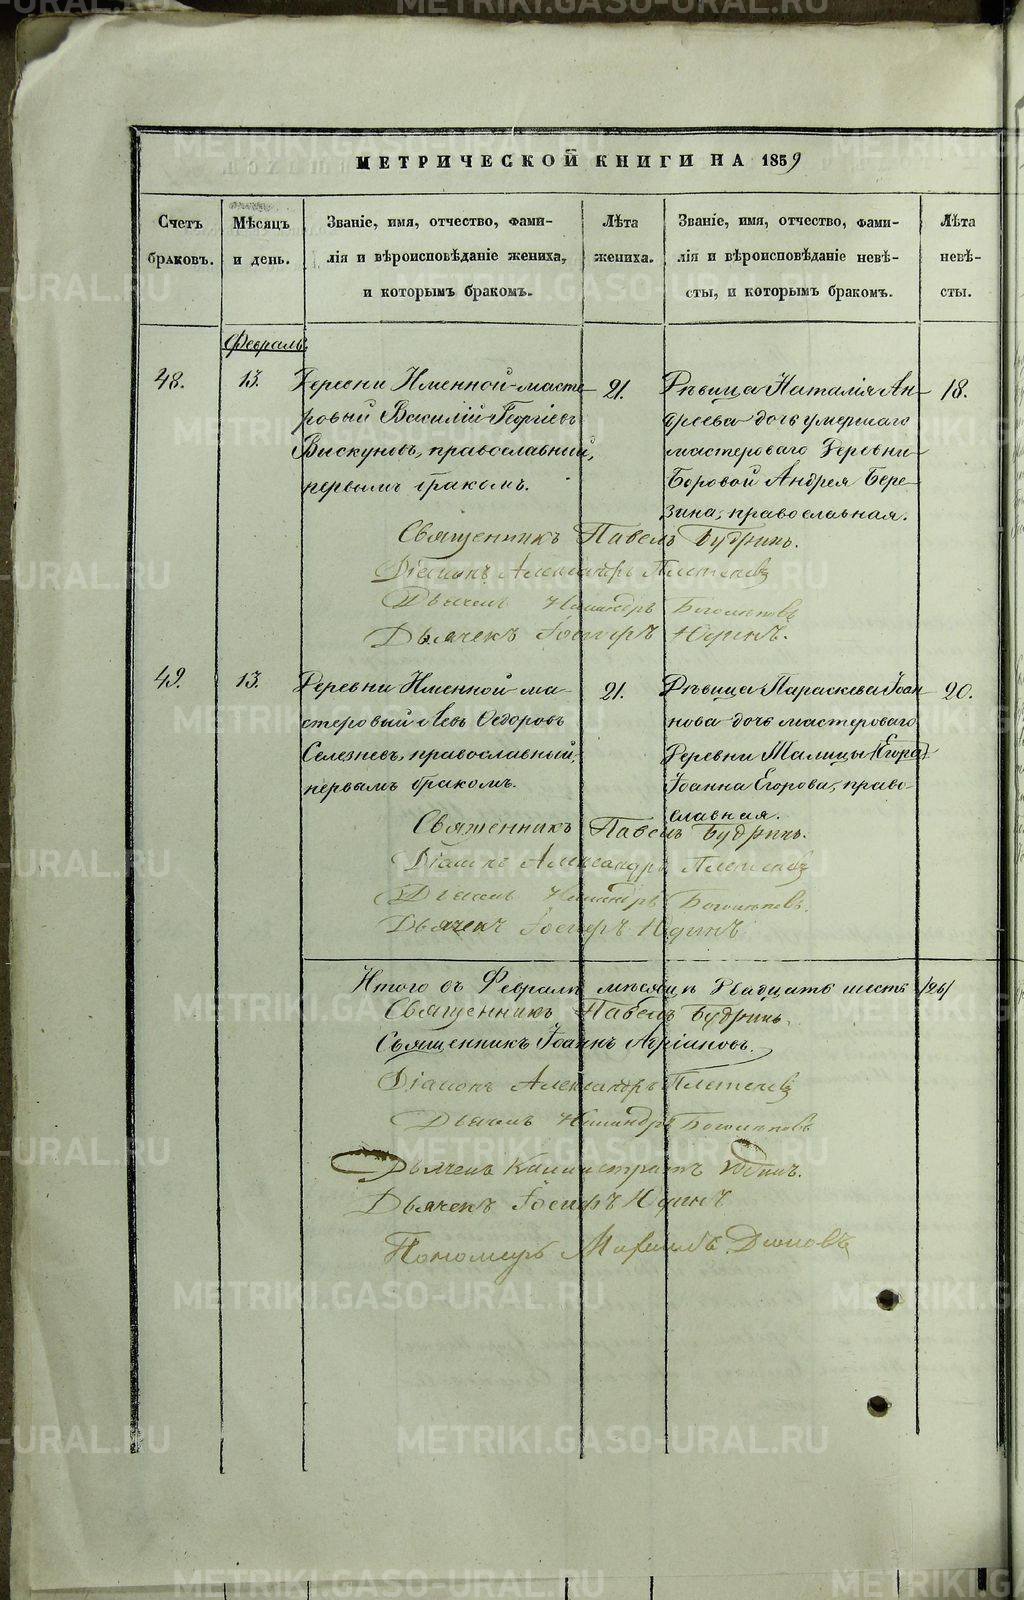 METRIKI.GASO-URAL.RU
МЕТРИЧЕСКОЙ КНИГИ НА 1859
Счетъ браковъ.
Мѣсяцъ и день.
Званіе, имя, отчество, фами-
лія и вѣроисповѣданіе жениха,
и которымъ бракомъ.
Лѣта жениха.
Званіе, имя, отчество, фами-
лія и вѣроисповѣданіе невѣ-
сты, и которымъ бракомъ.
Лѣта невѣ-
сты.
Февраль
48.
13.
Деревни Именной масте-
ровый Василій Георгіевъ
Вискуновъ, православный,
первымъ бракомъ.
21.
Дѣвица Наталія Ан-
дреева дочь умершаго
мастероваго Деревни
Боровой Андрея Бере-
зина, православная.
18.
Священникъ Павелъ Будринъ.
Діаконъ Александръ Плетеневъ
Дьячекъ Никандръ
Дьячекъ Іосифъ Юдинъ.
49.
13.
Деревни Именной ма-
стеровый Левъ Ѳедоровъ
Селезневъ, православный,
первымъ бракомъ.
21.
Дѣвица Параскева Іоан-
нова дочь мастероваго
Деревни Малицы (Егора)
Іоанна Егорова, право-
славная.
20.
Священникъ Павелъ Будринъ.
Діаконъ Александръ Плетеневъ
Дьячекъ Никандръ
Дьячекъ Іосифъ Юдинъ
Итого въ Февралѣ мѣсяцѣ Двадцать шесть /26/
Священникъ Павелъ Будринъ.
Священникъ Іоаннъ Адріановъ.
Діаконъ Александръ Плетеневъ
Дьячекъ Никандръ
Дьячекъ Каллистратъ Юдинъ.
Дьячекъ Іосифъ Юдинъ
Пономарь